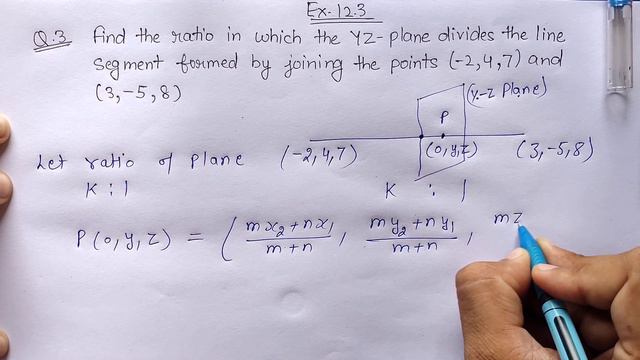 Ex-12.3
Q.3 find the ratio in which the YZ-plane divides the line
segment formed by joining the points (-2,4,7) and
(3,-5,8)
(Y-Z Plane)
P
Let ratio of plane (-2,4,7) (0,y,z) (3,-5,8)
K : 1 K : 1
P(0,y,z) = ( mx₂+nx₁/m+n , my₂+ny₁/m+n , mz